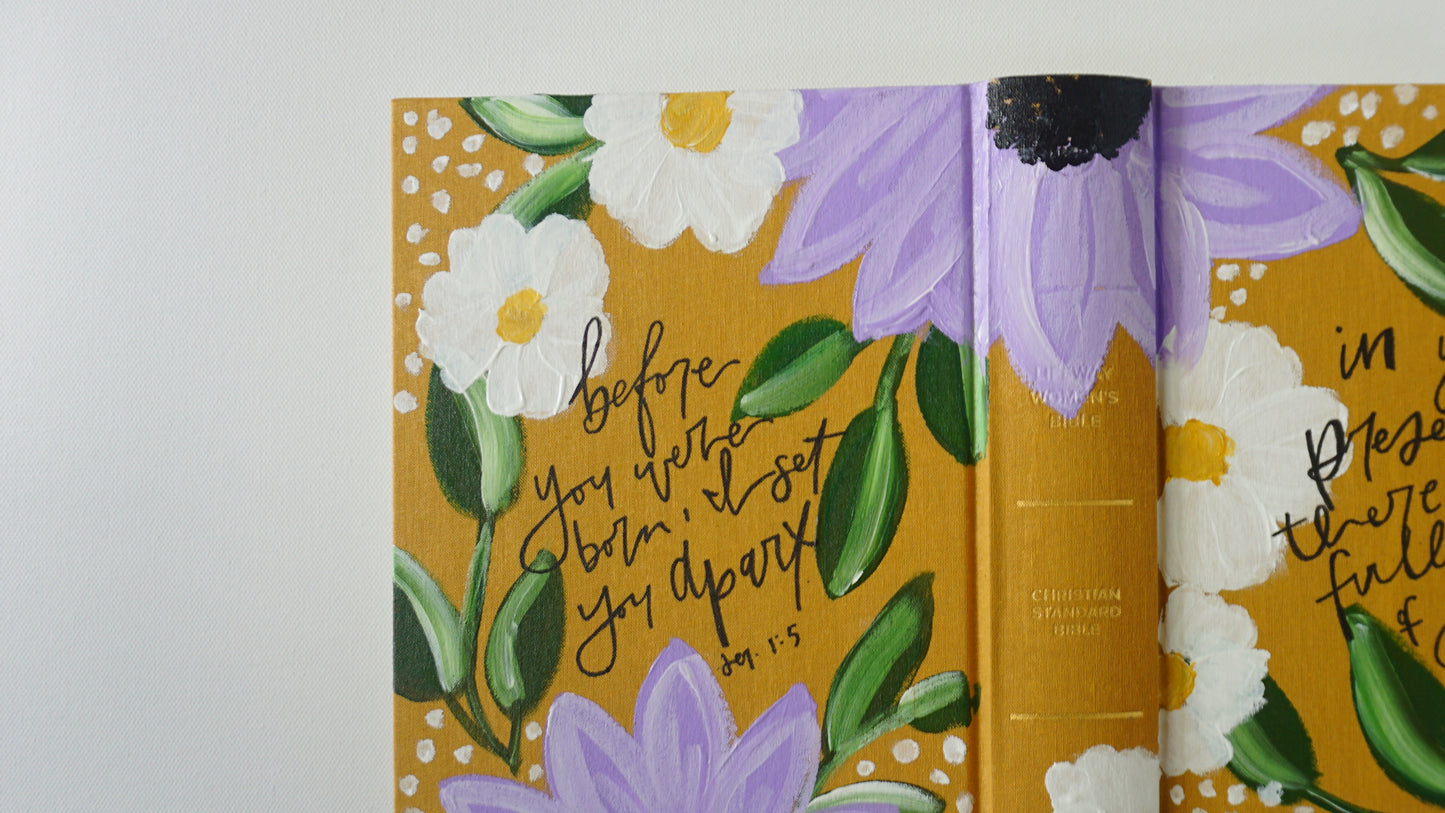 before
you were
born, I set
you apart
Jer. 1:5
HE WAY
WOMEN'S
BIBLE
CHRISTIAN
STANDARD
BIBLE
in
there
of